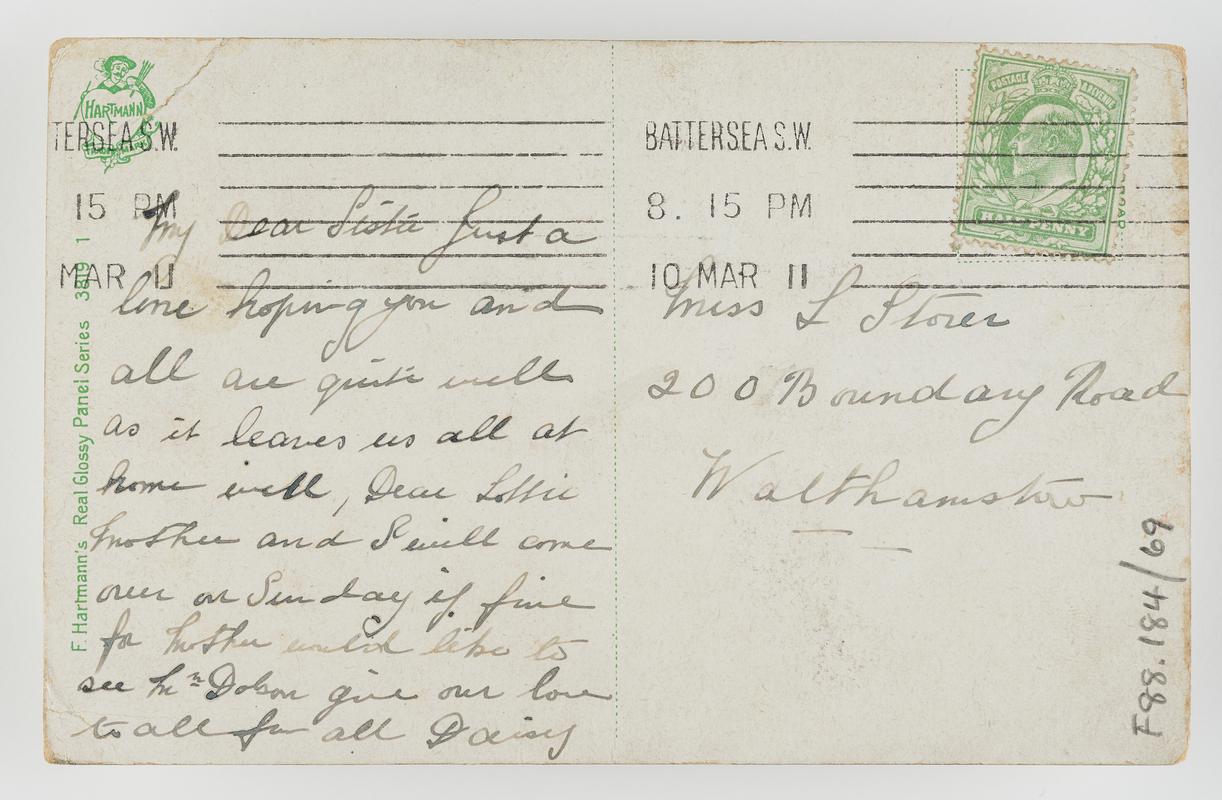 HARTMANN
TERSEA S.W.
15 PM
MAR 11
My Dear Sister Just a
line hoping you and
all are quite well
as it leaves us all at
home well, Dear Lottie
Mother and I will come
over on Sunday if fine
for Mother would like to
see Mrs Dobson give our love
to all from all Daisy
F. Hartmann's Real Glossy Panel Series 3819 1
BATTERSEA S.W.
8. 15 PM
10 MAR 11
POSTAGE REVENUE
HALFPENNY
Miss L Storer
200 Boundary Road
Walthamstow
F88.184/69